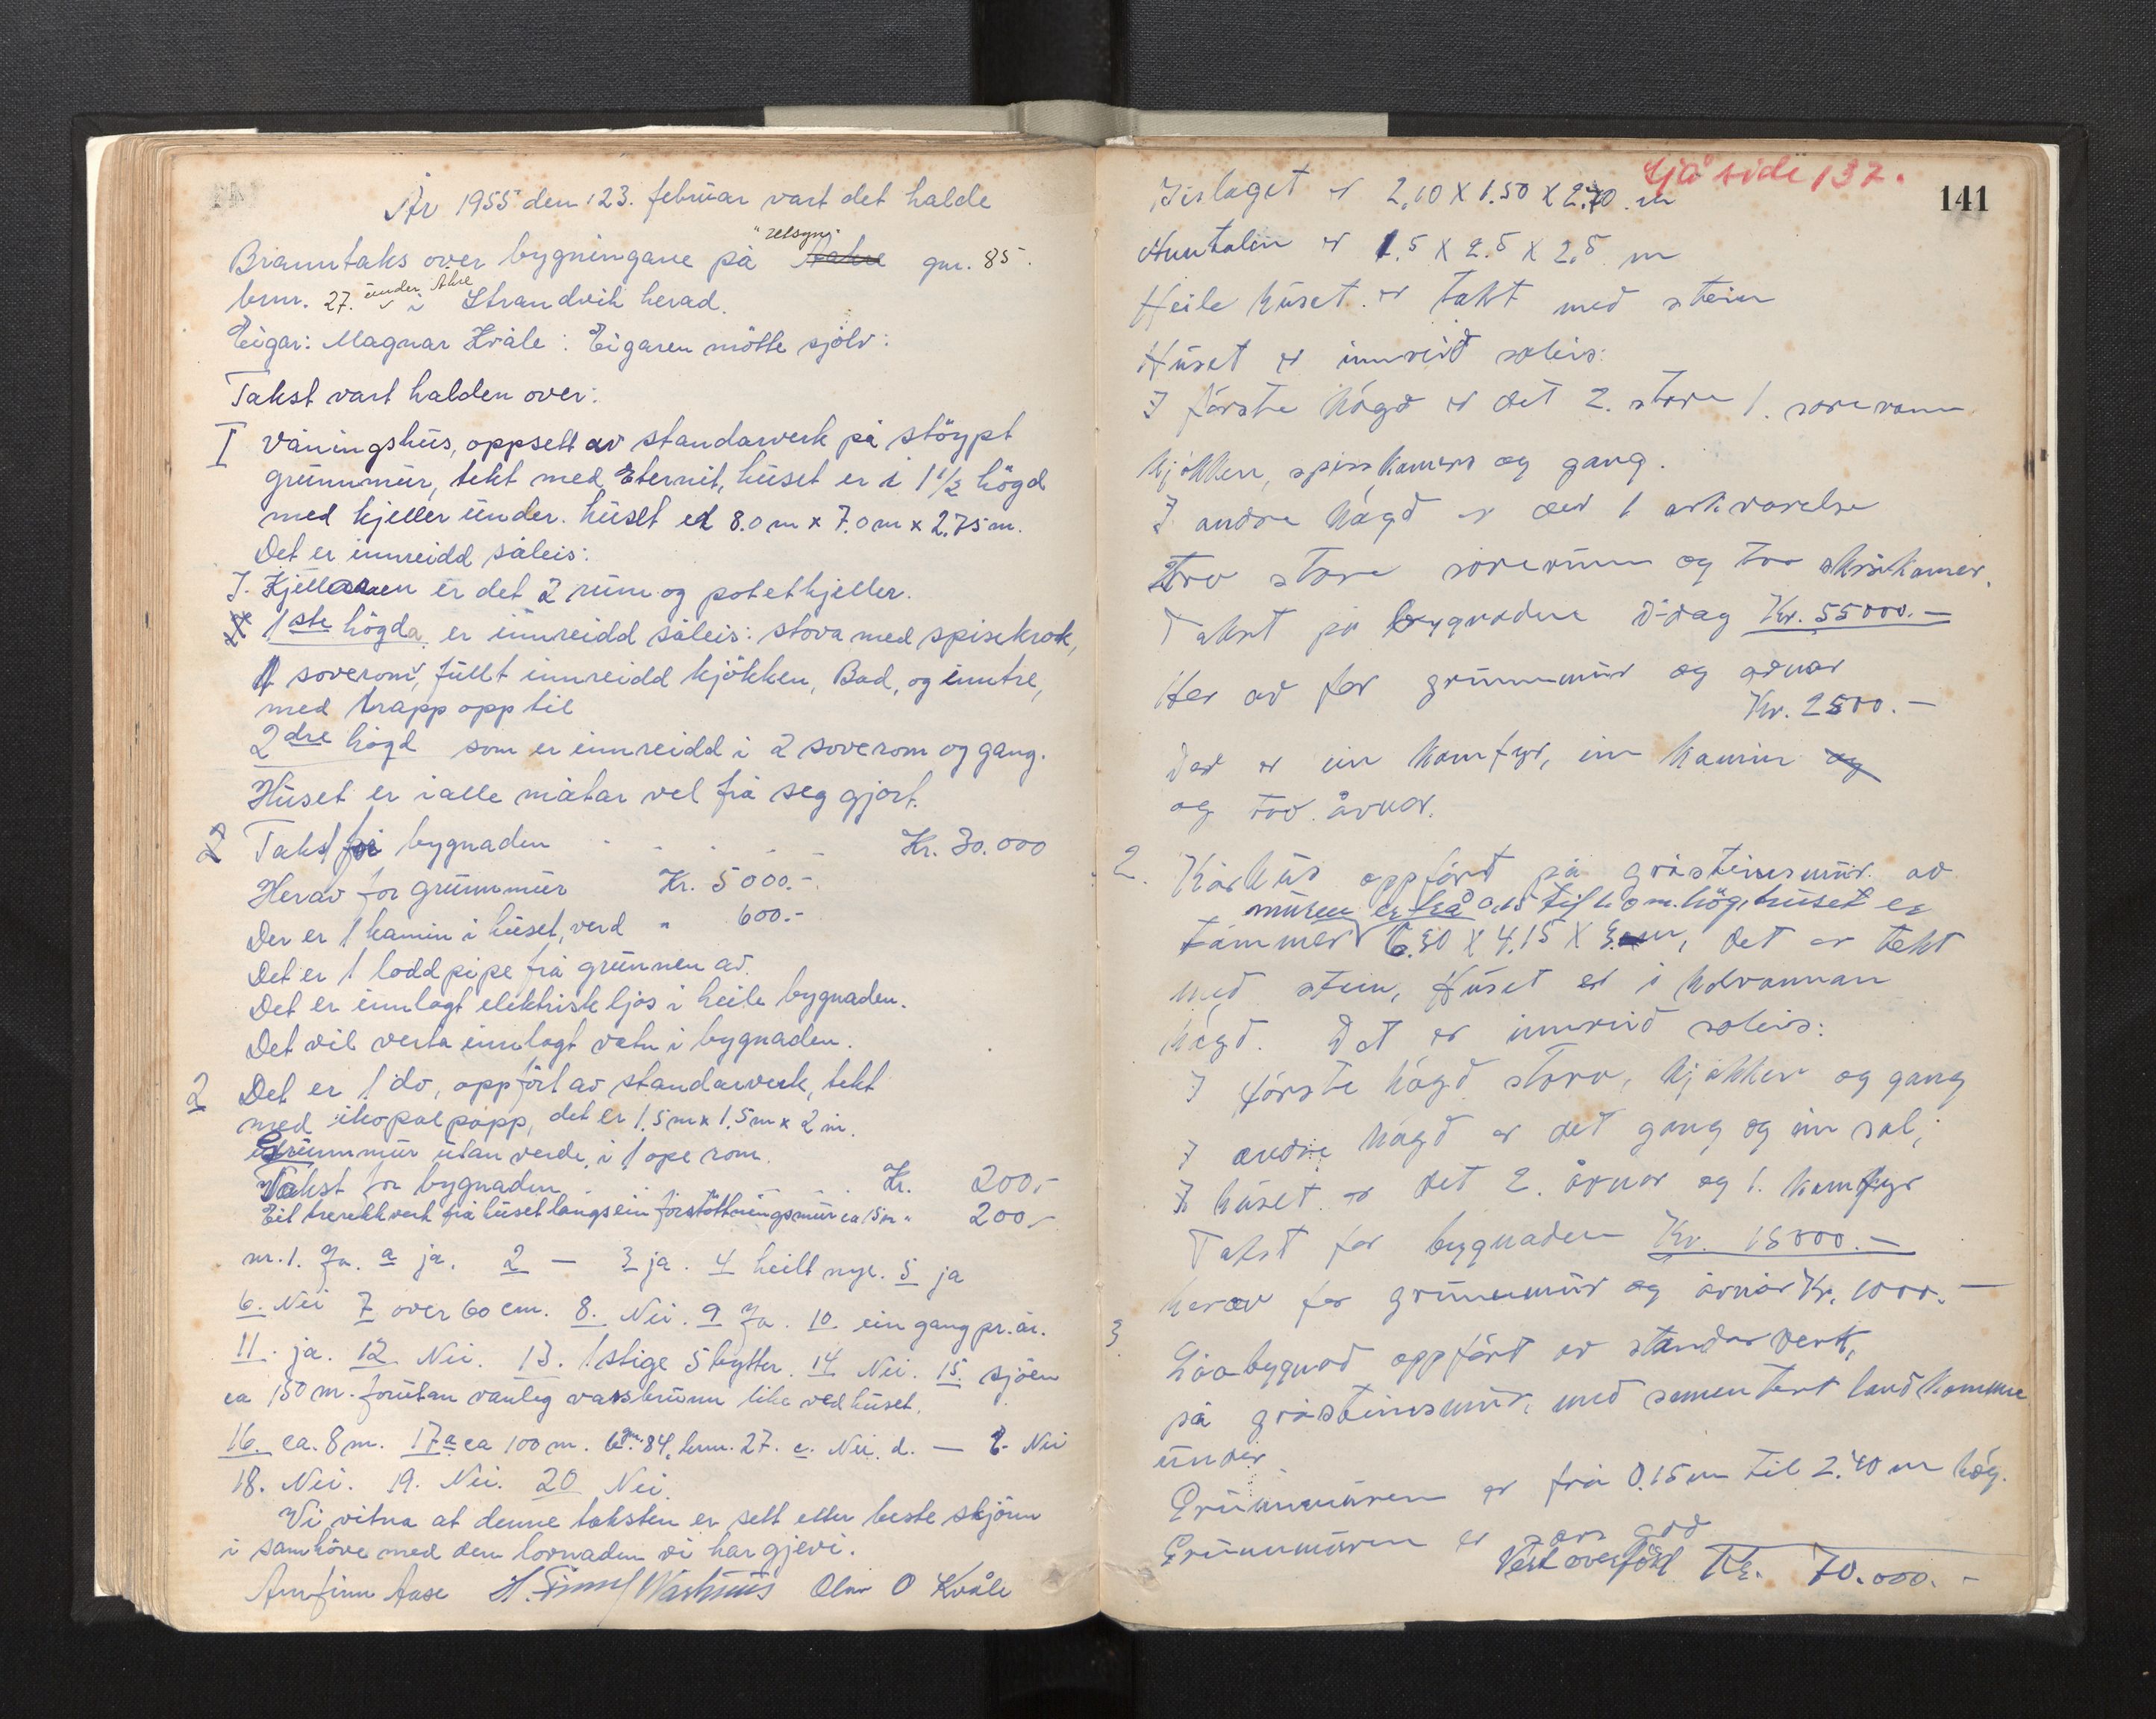 År 1955 den 23. februar vart det halde
Branntaks over bygningane på "Utsyn" Aakre gnr. 85.
bnr. 27. under Åkre i Strandvik herad.
Eigar: Magnar Kvåle: Eigaren møtte sjølv:
Takst vart halden over:
I Våningshus, oppsett av standarverk på støypt
grunnmur, tekt med Eternit, huset er i 1 1/2 högd
med kjeller under. huset er 8.0 m x 7.0 m x 2.75 m.
Det er innreidd såleis:
I. Kjellaren er det 2 rum og potetkjeller.
1ste högda er innreidd såleis: stova med spisekrok,
1 soverom, fullt innreidd kjökken, Bad, og inntre,
med trapp opp til
2dre högd som er innreidd i 2 soverom og gang.
Huset er i alle måtar vel frå seg gjort.
2 Takst for bygnaden Kr. 30.000
Herav for grunnmur Kr. 5000.-
Der er 1 kamin i huset, verd " 600.-
Det er 1 loddpipe frå grunnen av.
Det er innlagt elektrisk ljos i heile bygnaden.
Det vil verta innlagt vatn i bygnaden.
2 Det er 1 do, oppfört av standarverk, tekt
med ikopal papp, det er 1.5 m x 1.5 m x 2 m.
Grunnmur utan verde, i 1 ope rom.
Takst for bygnaden Kr. 200,-
Eit trerekkverk frå huset langs ein forstöttningsmur ca 15 m " 200,-
nr. 1. Ja. a ja. 2 — 3 ja. 4 heilt nye. 5 ja
6. Nei 7 over 60 cm. 8. Nei. 9 Ja. 10 ein gang pr. år.
11. ja. 12 Nei. 13. 1 stige 5 bytter. 14 Nei. 15. sjöen
ca 150 m. forutan vanleg vassbrunn like ved huset.
16. ca. 8 m. 17 a ca 100 m. b gnr. 84, bnr. 27. c. Nei. d. — e. Nei
18. Nei. 19. Nei. 20 Nei.
Vi vitna at denne taksten er sett etter beste skjönn
i samhöve med den lovnaden vi har gjevi.
Arnfinn Aase Olav O Kvåle
Sjå side 137.
141
Bislaget er 2.10 X 1.50 X 2.70 m
er 1.5 X 2.5 X 2.5 m
Heile huset er tekt med stein
Huset er innreid soleis:
I förste högd er det 2. stove 1. soverom
kjökken, spiskamers og gang.
I andre högd er det 1 arkvarelse
tvo store soverum og tvo skråkamer.
Takst på bygnaden i dag Kr. 55000.-
Her av for grunnmur og årnar
Kr. 2500.-
Der er ein komfyr, ein kamin og
og tvo årnar.
2. Kårhus oppfört på gråsteinsmur av
muren er frå 0.15 til 1.0 m. hög, huset er
tömmer 6.30 X 4.15 X det er tekt
med stein, Huset er i halvannan
högd. Det er innreid soleis:
I förste högd stova, kjökken og gang
I andre högd er det gang og ein sal;
I huset er det 2. årnar og 1. komfyr
Takst for bygnaden Kr. 15000.-
herav for grunnmur og årnar Kr. 1000.-
3. Löabygnad oppfört av standarverk,
på gråsteinsmur, med sementert landkomme
under
Grunnmuren er frå 0.15 m til 2.40 m hög.
Grunnmuren er sers god
Vert overfört Kr. 70.000.-